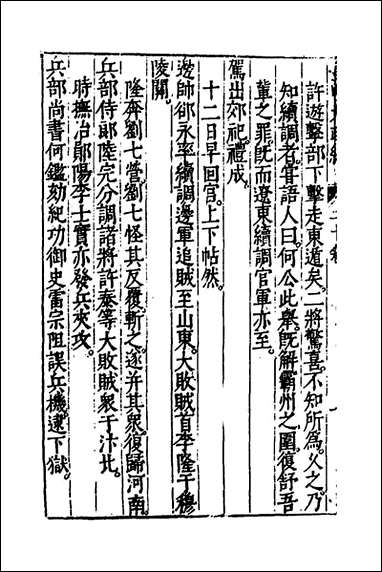 許遊擊部下擊走東道矣。二將驚喜。不知所爲。久之。乃
知續調者。嘗語人曰。何公此舉。旣解霸州之圍。復舒吾
輩之罪。旣而遼東續調官軍亦至。
駕出郊祀禮成。
十二日早回宮。上下帖然。
遊帥郤永率續調邊軍追賊至山東。大敗賊首李隆于穆
陵關。
隆奔劉七營。劉七怪其反覆。斬之。遂幷其衆。復歸河南。
兵部侍郞陸完分調諸將許泰等大敗賊衆于汴北。
時撫治鄖陽李士實亦發兵夾攻。
兵部尚書何鑑劾紀功御史雷宗阻誤兵機。逮下獄。